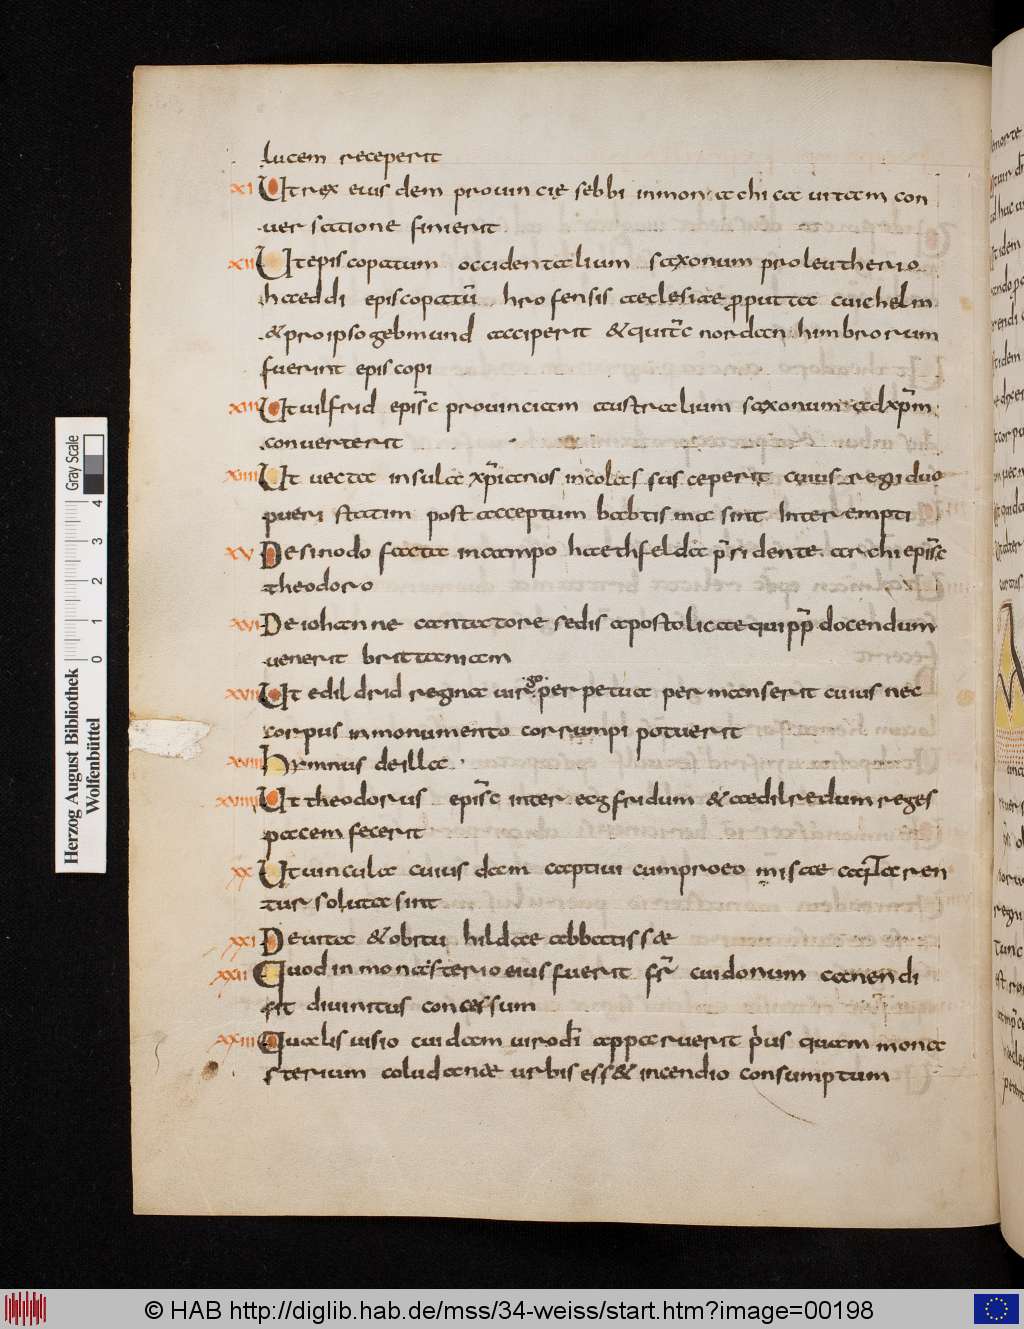 lucem receperit
XI Ut rex eius dem prouin cię sebbi in monachica uitam con
uersatione finierit
XII Ut episcopatum occidentalium saxonum pro leutherio
haeddi episcopatū hrofensis aeclesiae ꝓputta cuichelm
& pro ipso gebmund acciperit & qui tc̄ nordan himbrorum
fuerint episcopi
XIII Ut uilfrid epīsc prouinciam australium saxonum ad xp̄m
conuerterit
XIIII Ut uecta insula xp̄ianos incolas susceperit cuius regi duo
pueri statim post acceptum babtisma sint interempti
XV De sinodo facta in campo haethfelda p̄sidente archiepīsc
theodoro
XVI De iohanne cantatore sedis apostolicae qui ꝓp̄ docendum
uenerit brittaniam
XVII Ut edildrid regina uir go perpetua permanserit cuius nec
corpus in monumento corrumpi potuerit
XVIII Hymnus de illa
XVIIII Ut theodorus epīsc inter ecgfridum & aedilredum reges
pacem fecerit
XX Ut uincula cuius dam captiui cum pro eo misae cantaren
tur soluta sint
XXI De uita & obitu hildae abbatissae
XXII Quod in monasterio eius fuerit fr̄ cui donum canendi
sit diuinitus concessum
XXIII Qualis uisio cuidam uiro dī apparuerit p̄us quam mona
sterium coludanae urbis ess& incendio consumptum
Gray Scale
4
3
2
1
0
Herzog August Bibliothek
Wolfenbüttel
© HAB http://diglib.hab.de/mss/34-weiss/start.htm?image=00198